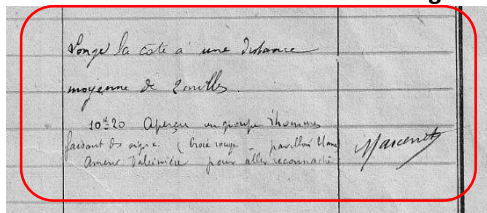 Longe la côte à une distance
moyenne de 2 milles.
10h20 Aperçu un groupe d'hommes
faisant des signe (croix rouge - pavillon blanc
Amené baleinière pour aller reconnaitre